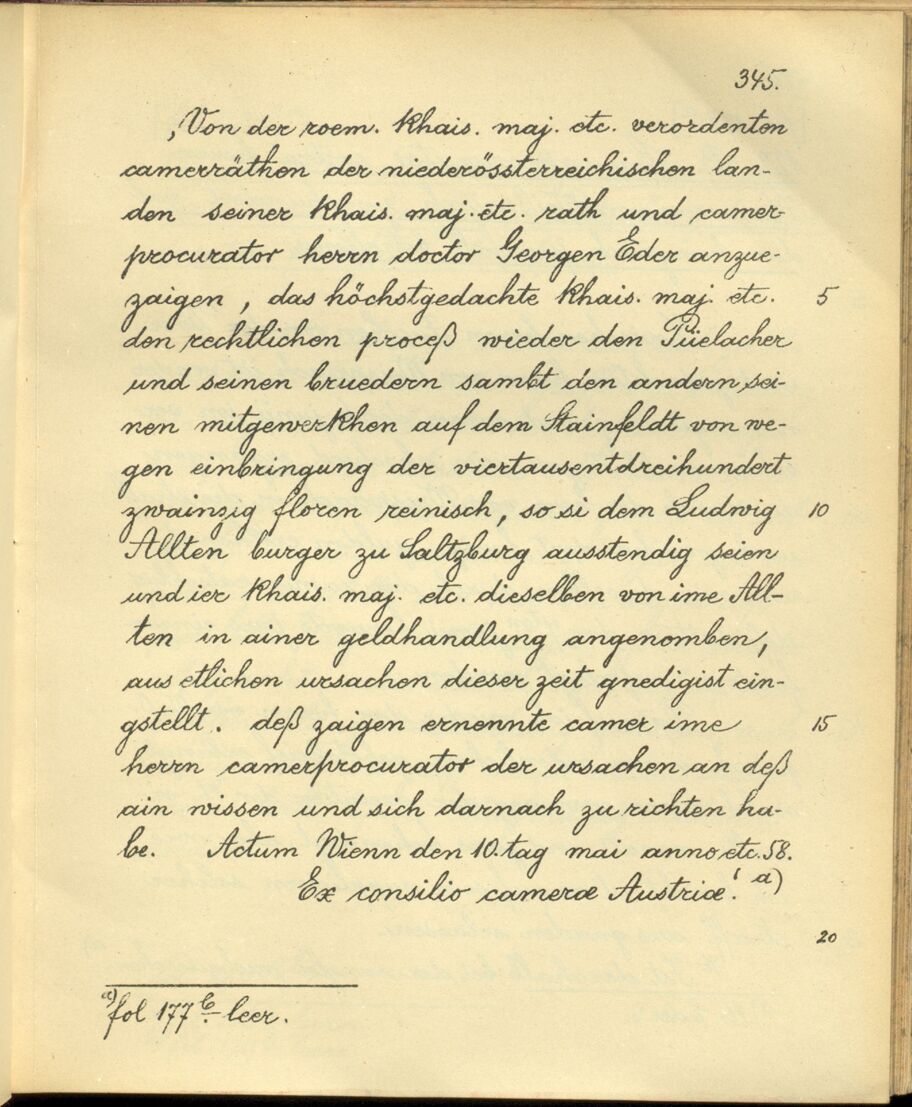 345.
‚Von der roem. khais. maj. etc. verordenten
camerräthen der niederössterreichischen lan-
den seiner khais. maj. etc. rath und camer-
procurator herrn doctor Georgen Eder anzue-
zaigen, das höchstgedachte khais. maj. etc. 5
den rechtlichen proceß wieder den Püelacher
und seinen bruedern sambt den andern sei-
nen mitgewerkhen auf dem Stainfeldt von we-
gen einbringung der viertausentdreihundert
zwainzig floren reinisch, so si dem Ludwig 10
Allten burger zu Saltzburg ausstendig seien
und ier khais. maj. etc. dieselben von ime All-
ten in ainer geldhandlung angenomben,
aus etlichen ursachen dieser zeit gnedigist ein-
gstellt. deß zaigen ernennte camer ime 15
herrn camerprocurator der ursachen an deß
ain wissen und sich darnach zu richten ha-
be. Actum Wienn den 10. tag mai anno etc. 58.
Ex consilio cameræ Austriæ.‘ a)
20
a) fol 177 b leer.